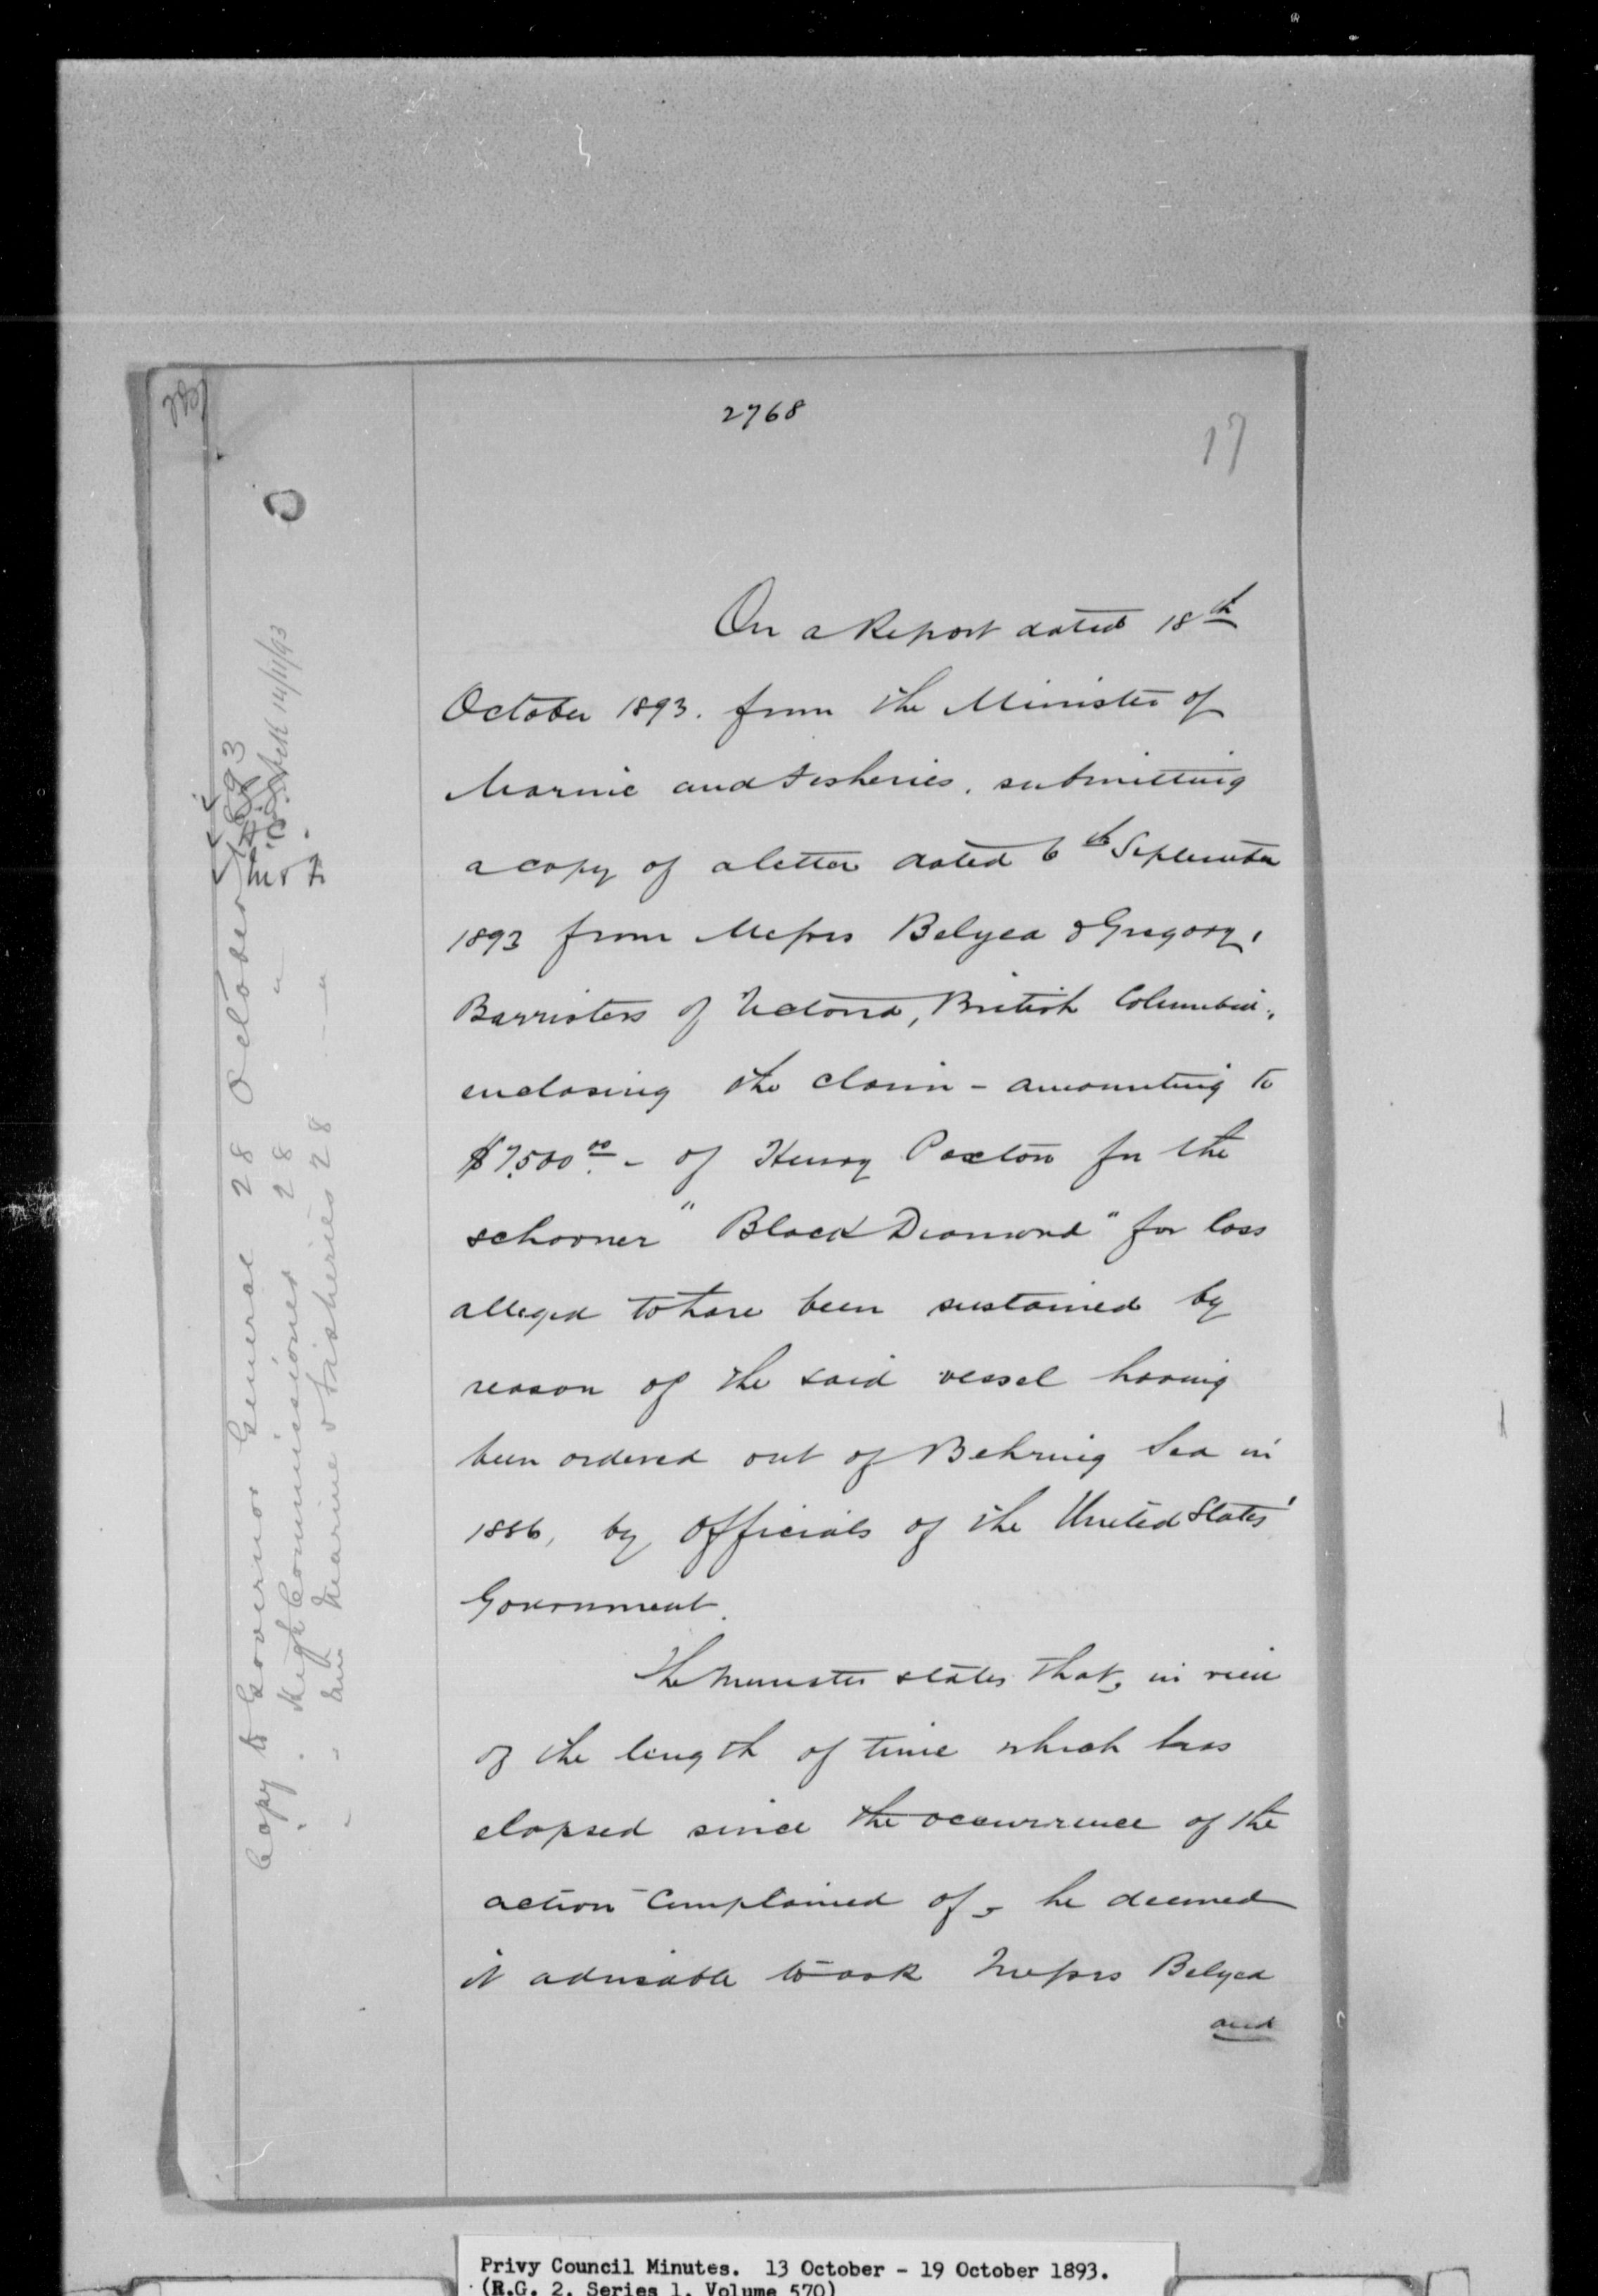 2768
17
On a Report dated 18th
October 1893. from the Minister of
Marine and Fisheries, submitting
a copy of a letter dated 6th September
1893 from Messrs Belyea & Gregory,
Barristers of Victoria, British Columbia,
enclosing the claim - amounting to
$7,500.00 - of Henry Paxton for the
schooner "Black Diamond" for loss
alleged to have been sustained by
reason of the said vessel having
been ordered out of Behring Sea in
1886, by Officials of the United States'
Government.
The Minister states that, in view
of the length of time which has
elapsed since the occurrence of the
action complained of, he deemed
it advisable to ask Messrs Belyea
and
Copy to Governor General 28 October 1893
" " High Commissioner 28 "
" " Min Marine & Fisheries 28 " "
M & F
14/11/93
Privy Council Minutes. 13 October - 19 October 1893.
(R.G. 2, Series 1, Volume 570)